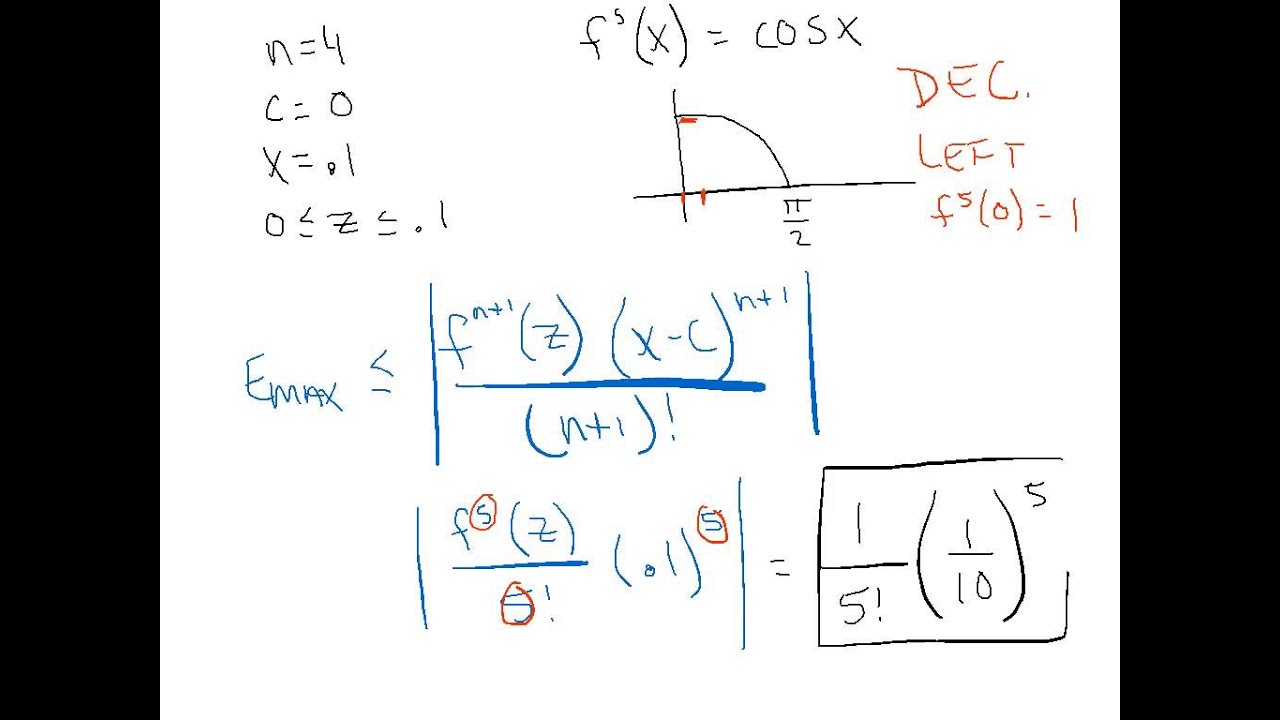 n=4
c=0
x=.1
0≤z≤.1
f⁵(x) = cosx
DEC.
LEFT
f⁵(0)=1
π/2
EMAX ≤ | fⁿ⁺¹(z) (x-c)ⁿ⁺¹ / (n+1)! |
| f⁵(z) / 5! (.1)⁵ | = 1/5! (1/10)⁵